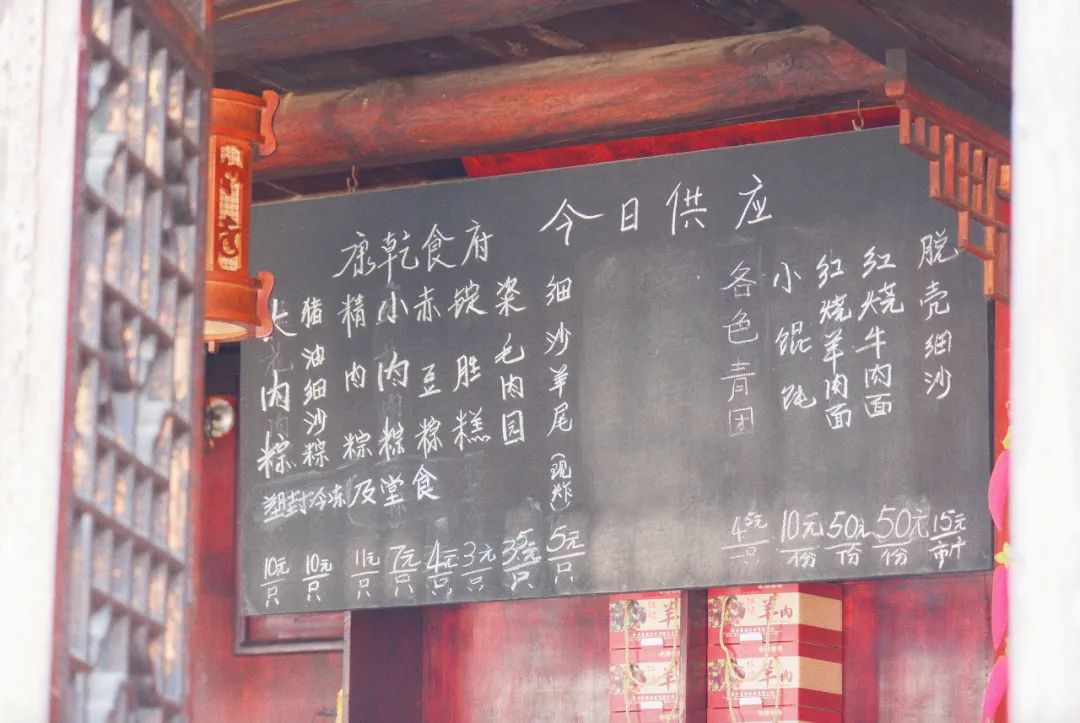 今日供应
康乾食府
大肉粽 10元/只
猪油细沙粽 10元/只
精肉粽 11元/只
小肉粽 7元/只
赤豆粽 4元/只
锭胜糕 3元/只
染毛肉园 3.5元/只
细沙羊尾(现炸) 5元/只
塑封冷冻及堂食
各色青团 4.5元/只
小馄饨 10元/份
红烧羊肉面 50元/份
红烧牛肉面 50元/份
脱壳细沙 15元/市斤
羊肉
羊肉
羊肉
羊肉